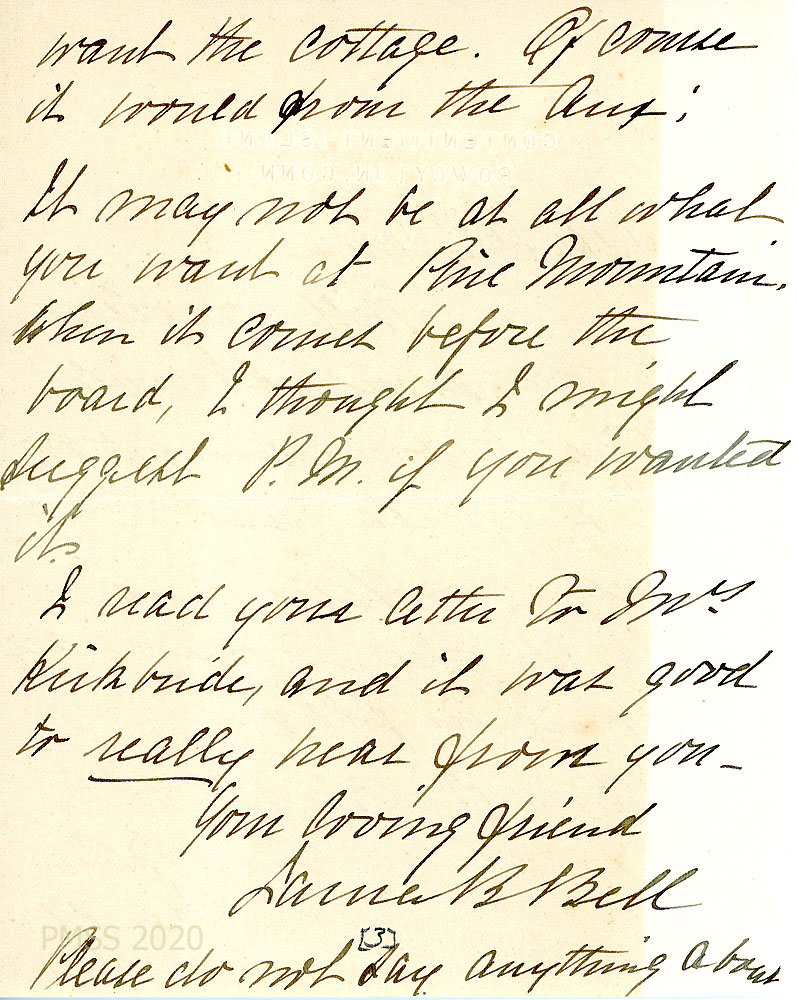 want the cottage. Of course
it would from the Aux;
CONTENTMENT ISLAND
ROWAYTON, CONN.
It may not be at all what
you want at Pine Mountain.
When it comes before the
board, I thought I might
suggest P.M. if you wanted
it.
I read your letter to Mrs
Kirkbride, and it was good
to really hear from you—
Your loving friend
B Bell
PMSS 2020
[3]
Please do not say anything about